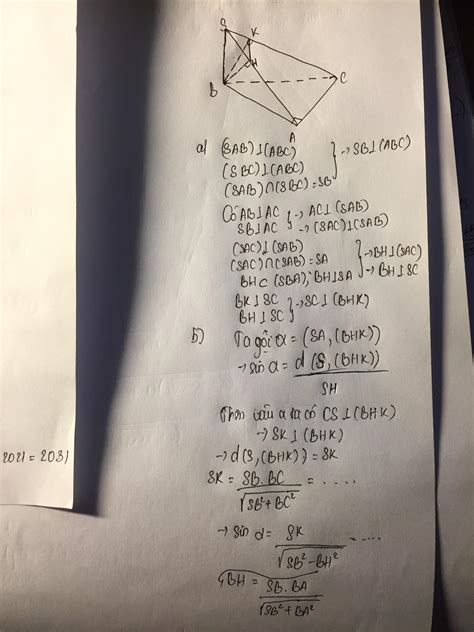 S
K
H
B
C
A
a) (SAB)⊥(ABC)
(SBC)⊥(ABC)
(SAB)∩(SBC)=SB
} → SB⊥(ABC)
Có AB⊥AC
SB⊥AC
} → AC⊥(SAB)
→ (SAC)⊥(SAB)
(SAC)⊥(SAB)
(SAC)∩(SAB)=SA
BH⊂(SBA); BH⊥SA
} → BH⊥(SAC)
→ BH⊥SC
BK⊥SC
BH⊥SC
} → SC⊥(BHK)
b) Ta gọi α = (SA, (BHK))
→ sin α = d(S, (BHK)) / SH
Theo câu a ta có CS⊥(BHK)
→ SK⊥(BHK)
→ d(S, (BHK)) = SK
2021 = 2031
SK = SB.BC / √SB²+BC² = ....
→ sin α = SK / √SB²-BH² = ....
BH = SB.BA / √SB²+BA²